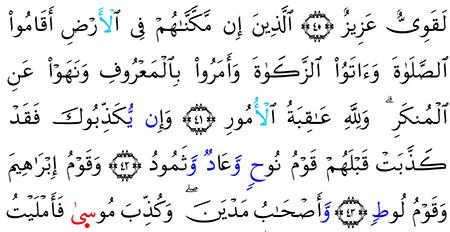 لَقَوِىٌّ عَزِيزٌ ﴿٤٥﴾ ٱلَّذِينَ إِن مَّكَّنَّٰهُمْ فِى ٱلْأَرْضِ أَقَامُوا۟
ٱلصَّلَوٰةَ وَءَاتَوُا۟ ٱلزَّكَوٰةَ وَأَمَرُوا۟ بِٱلْمَعْرُوفِ وَنَهَوْا۟ عَنِ
ٱلْمُنكَرِ ۗ وَلِلَّهِ عَٰقِبَةُ ٱلْأُمُورِ ﴿٤١﴾ وَإِن يُكَذِّبُوكَ فَقَدْ
كَذَّبَتْ قَبْلَهُمْ قَوْمُ نُوحٍ وَعَادٌ وَثَمُودُ ﴿٤٢﴾ وَقَوْمُ إِبْرَٰهِيمَ
وَقَوْمُ لُوطٍ ﴿٤٣﴾ وَأَصْحَٰبُ مَدْيَنَ ۖ وَكُذِّبَ مُوسَىٰ فَأَمْلَيْتُ